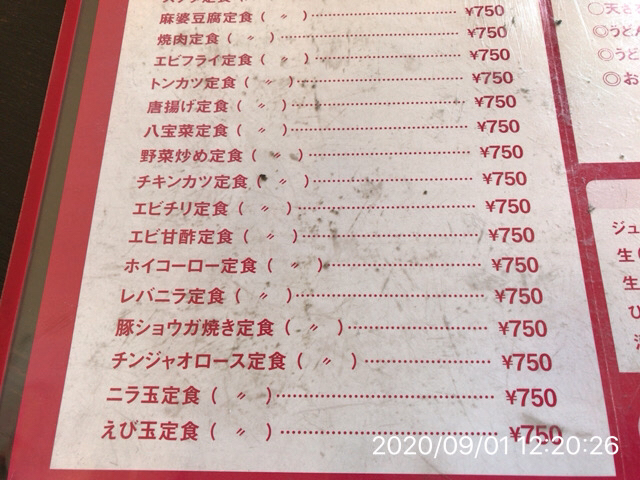 麻婆豆腐定食(〃)……¥750
焼肉定食(〃)……¥750
エビフライ定食(〃)……¥750
トンカツ定食(〃)……¥750
唐揚げ定食(〃)……¥750
八宝菜定食(〃)……¥750
野菜炒め定食(〃)……¥750
チキンカツ定食(〃)……¥750
エビチリ定食(〃)……¥750
エビ甘酢定食(〃)……¥750
ホイコーロー定食(〃)……¥750
レバニラ定食(〃)……¥750
豚ショウガ焼き定食(〃)……¥750
チンジャオロース定食(〃)……¥750
ニラ玉定食(〃)……¥750
えび玉定食(〃)……¥750
◎うどん
◎うど
◎お
ジュ
生
生
2020/09/01 12:20:26